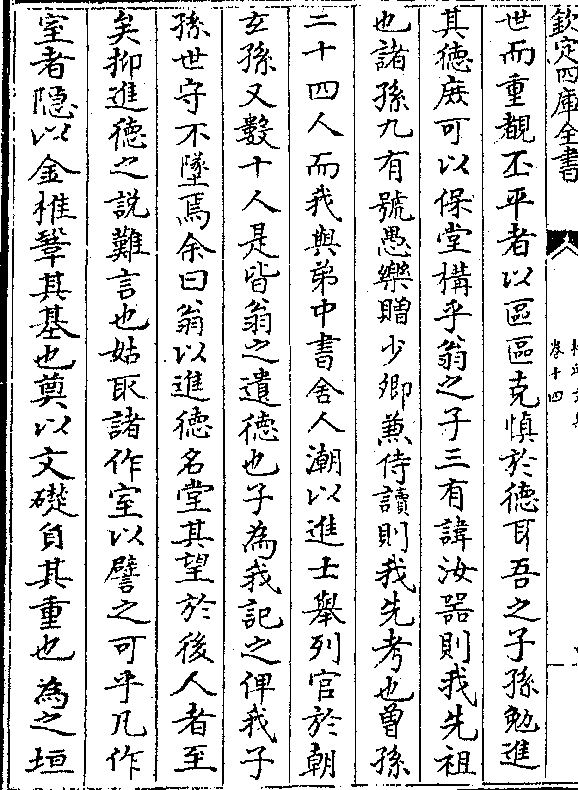 欽定四庫全書
卷十四
世而重覩丕平者以區區克慎於德耳吾之子孫勉進
其德庻可以保堂構乎翁之子三有諱汝器則我先祖
也諸孫九有號愚樂贈少卿兼侍讀則我先考也曾孫
二十四人而我與弟中書舍人潮以進士舉列官於朝
玄孫又數十人是皆翁之遺德也子為我記之俾我子
孫世守不墜焉余曰翁以進德名堂其望於後人者至
矣抑進德之説難言也姑取諸作室以譬之可乎凡作
室者隱以金椎鞏其基也奠以文礎負其重也為之垣